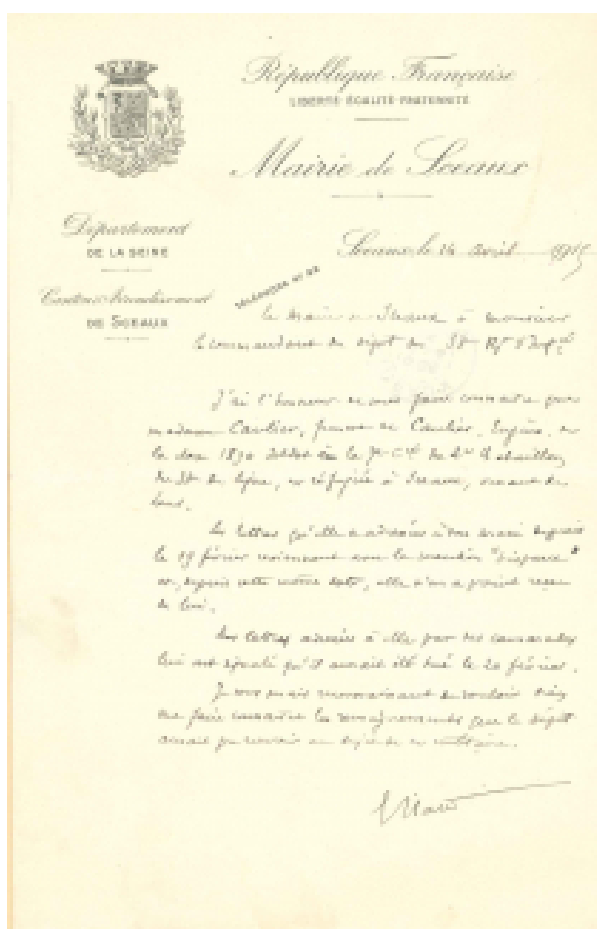 République Française
LIBERTÉ-ÉGALITÉ-FRATERNITÉ
Mairie de Sceaux
Département
DE LA SEINE
Sceaux, le 14 avril 1915
DE SCEAUX
TÉLÉPHONE Nº
Le Maire de Sceaux à Monsieur
le commandant du dépôt du
J'ai l'honneur de vous faire connaître que
madame Caulier, femme de Caulier, Eugène, de
la classe 1890 soldat à la 7e Cie du Bataillon
de ligne, est réfugiée à Sceaux, venant de
Les lettres qu'elle a adressées à son mari depuis
le 19 février reviennent avec la mention "disparu"
et, depuis cette même date, elle n'en a point reçu
de lui.
Des lettres adressées à elle par des camarades
lui ont signalé qu'il aurait été tué le 20 février.
Je vous serais reconnaissant de vouloir bien
me faire connaître les renseignements que le dépôt
aurait pu recevoir au sujet de ce militaire.